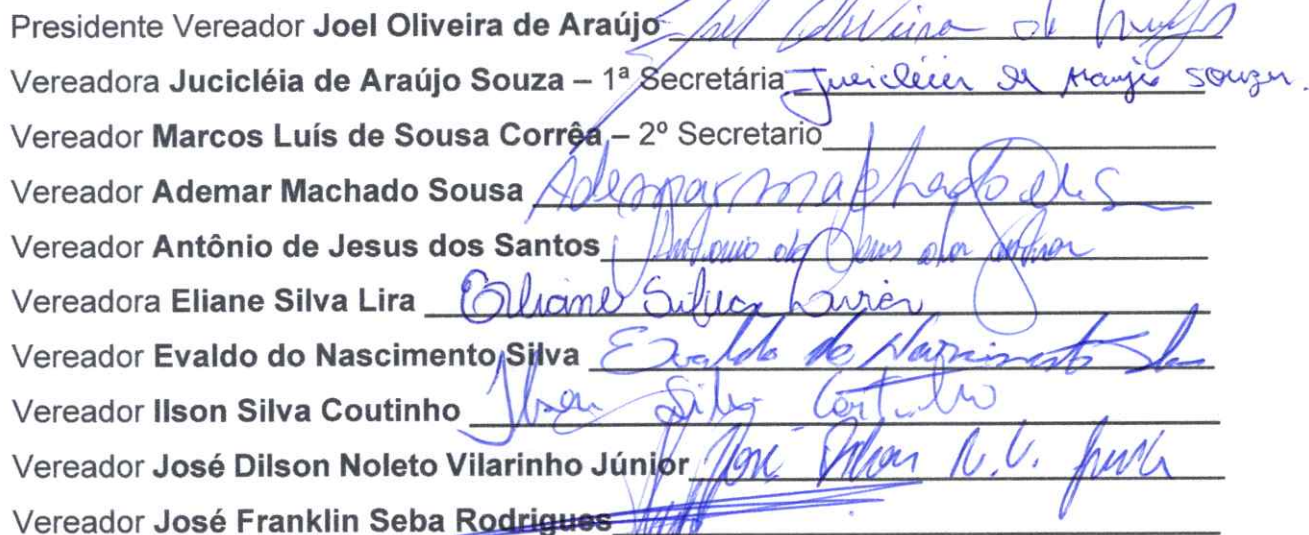 Presidente Vereador Joel Oliveira de Araújo Joel Oliveira de Araujo
Vereadora Jucicléia de Araújo Souza – 1ª Secretária Jucicléia de Araujo Souza.
Vereador Marcos Luís de Sousa Corrêa – 2º Secretario
Vereador Ademar Machado Sousa Ademar Machado de S
Vereador Antônio de Jesus dos Santos Antonio de Jesus dos Santos
Vereadora Eliane Silva Lira Eliane Silva
Vereador Evaldo do Nascimento Silva Evaldo do Nascimento Silva
Vereador Ilson Silva Coutinho Ilson Silva Coutinho
Vereador José Dilson Noleto Vilarinho Júnior José Dilson N. V. Junior
Vereador José Franklin Seba Rodrigues